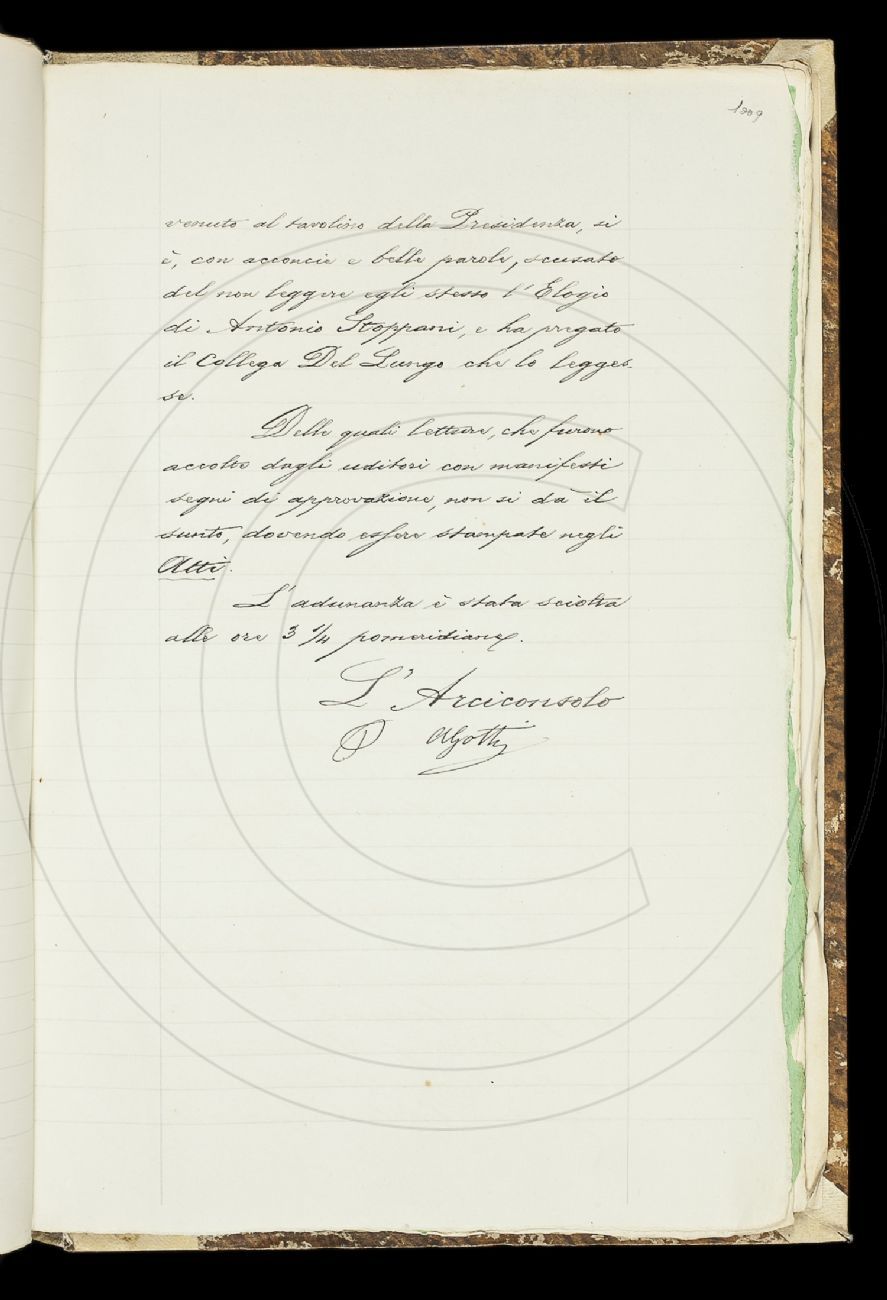 1209
venuto al tavolino della Presidenza, si
è, con acconcie e belle parole, scusato
del non leggere egli stesso l'Elogio
di Antonio Stoppani, e ha pregato
il Collega Del Lungo che lo legges-
se.
Delle quali letture, che furono
accolte dagli uditori con manifesti
segni di approvazione, non si dà il
sunto, dovendo essere stampate negli
Atti.
L'adunanza è stata sciolta
alle ore 3 1/4 pomeridiane.
L'Arciconsolo
AGotti